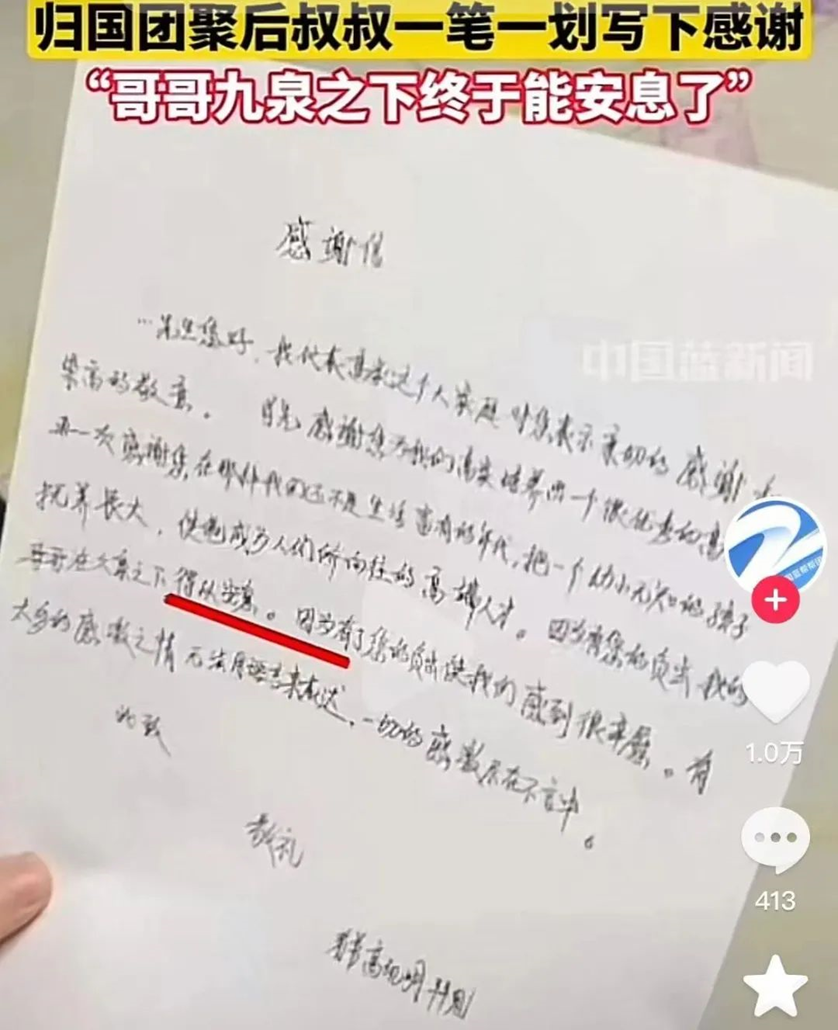 归国团聚后叔叔一笔一划写下感谢
“哥哥九泉之下终于能安息了”
感谢信
…先生您好，我代表高家这个大家庭对您表示亲切的感谢和
中国蓝新闻
崇高的敬意。首先感谢您为我们高家培养出一个很优秀的高
再一次感谢您在那种我们还不是生活富有的年代，把一个幼小无知的孩子
抚养长大，使他成为人们所向往的高端人才。因为有您的负出我的
哥哥在久泉之下得从安息。因为有了您的负出使我们感到很幸愿。有
太多的感激之情无法用语言来表达，一切的感激尽在不言中。
此致
敬礼
1.0万
413